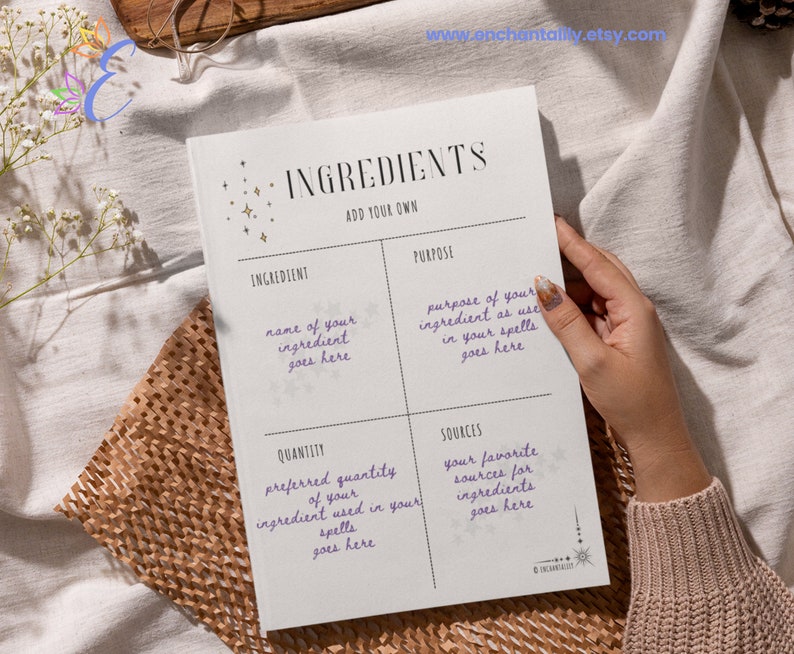 www.enchantallly.etsy.com
E
INGREDIENTS
ADD YOUR OWN
INGREDIENT
name of your
ingredient
goes here
PURPOSE
purpose of your
ingredient as use
in your spells
goes here
QUANTITY
preferred quantity
of your
ingredient used in your
spells
goes here
SOURCES
your favorite
sources for
ingredients
goes here
© ENCHANTALLLY